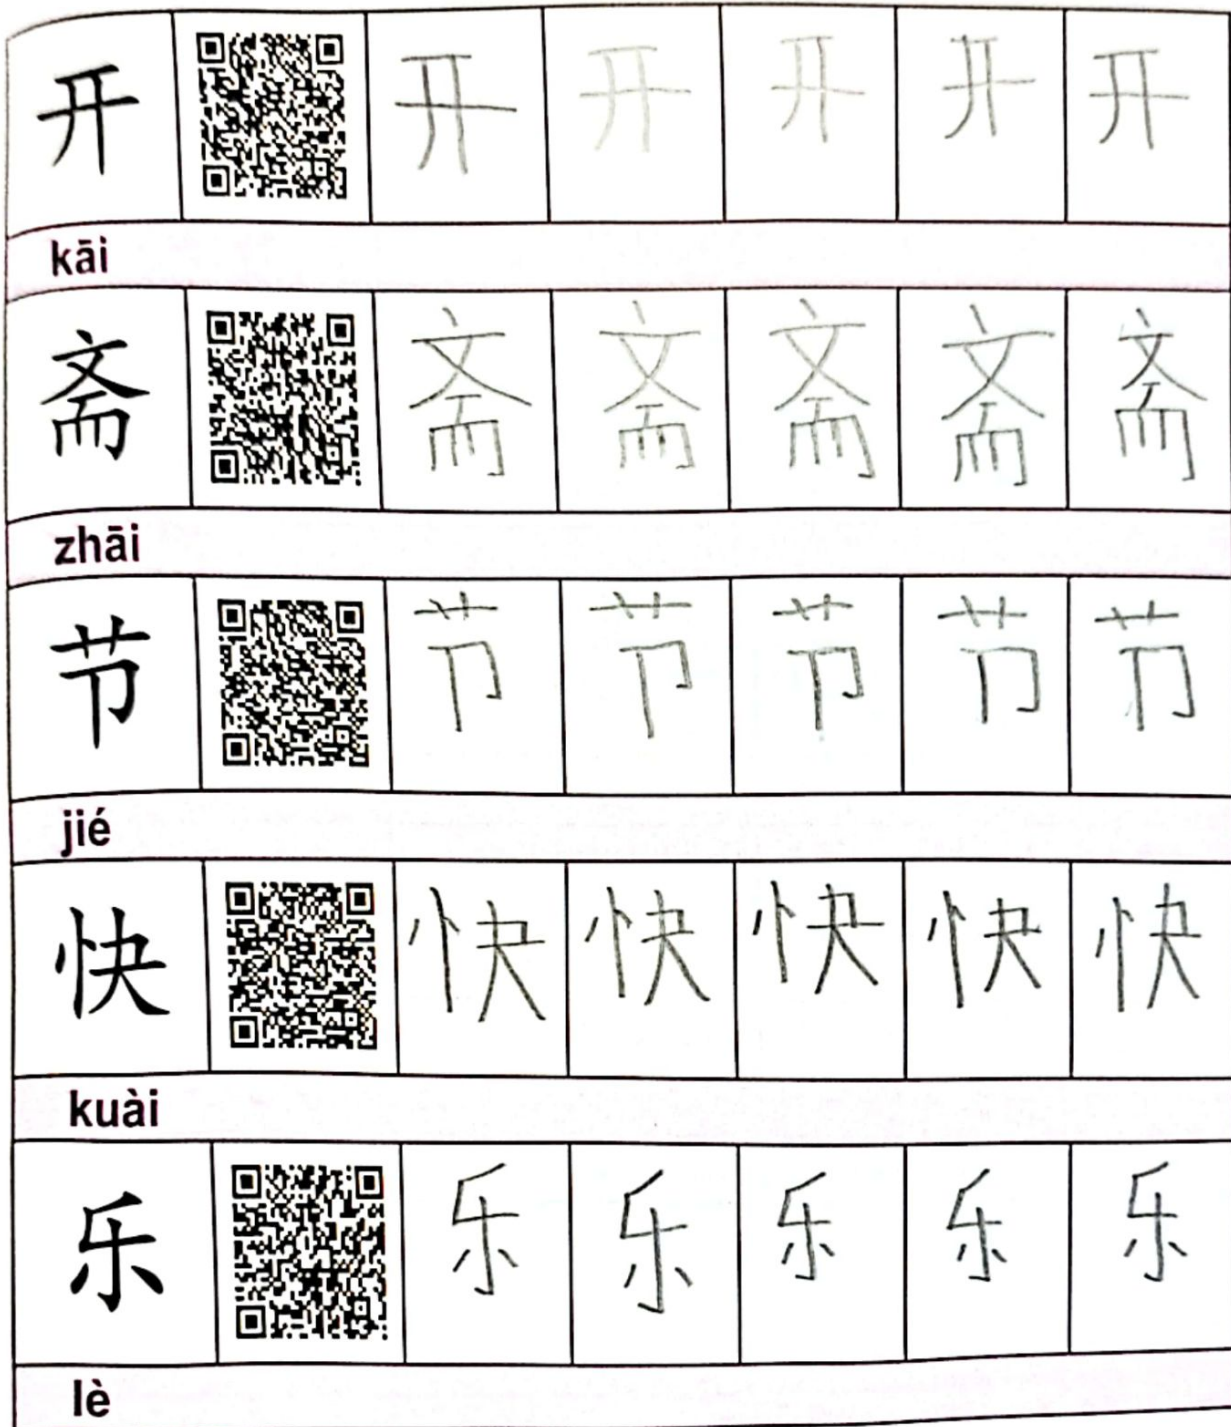 开 开 开 开 开 开
kāi
斋 斋 斋 斋 斋 斋
zhāi
节 节 节 节 节 节
jié
快 快 快 快 快 快
kuài
乐 乐 乐 乐 乐 乐
lè